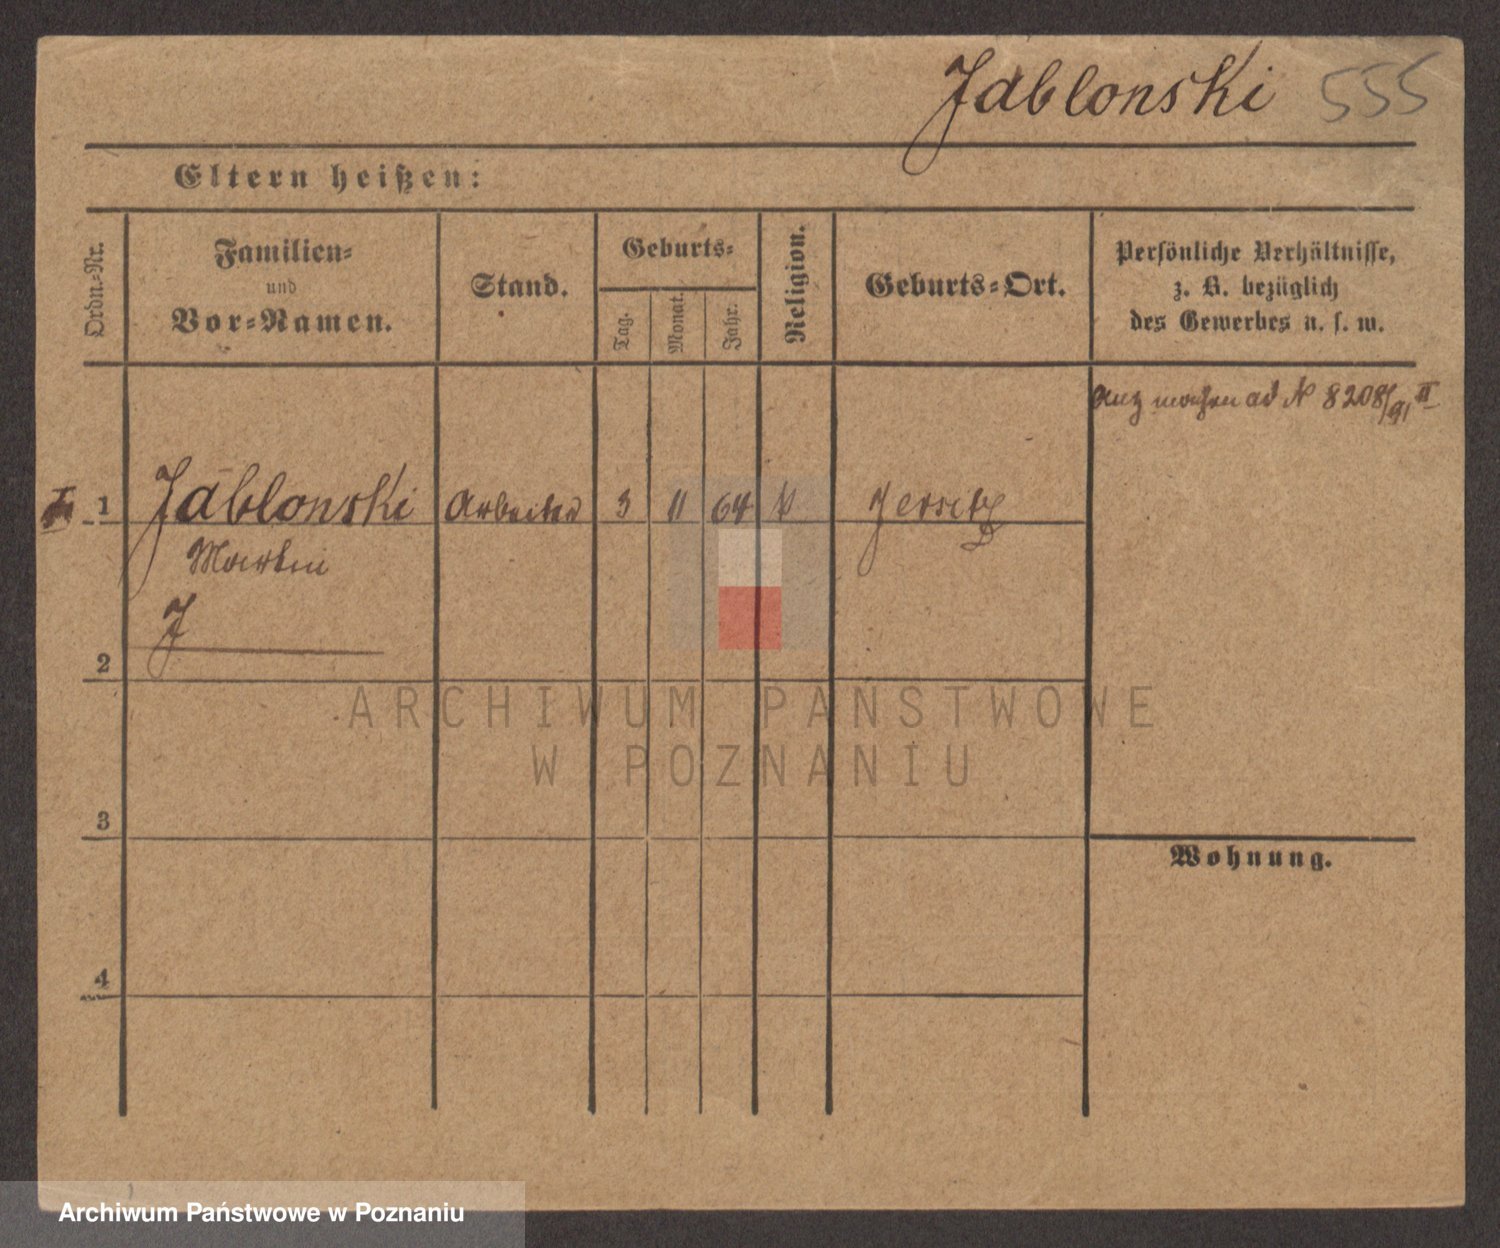 Jablonski 555
Eltern heißen:
Ordn.-Nr.
Familien-
und
Vor-Namen.
Stand.
Geburts-
Tag.
Monat.
Jahr.
Religion.
Geburts-Ort.
Persönliche Verhältnisse,
z. B. bezüglich
des Gewerbes u. s. w.
ad N 8208/91 II
1 Jablonski Arbeiter 3 11 64 Jersitz
Martin
J
2
3
Wohnung.
4
ARCHIWUM PAŃSTWOWE
W POZNANIU
Archiwum Państwowe w Poznaniu